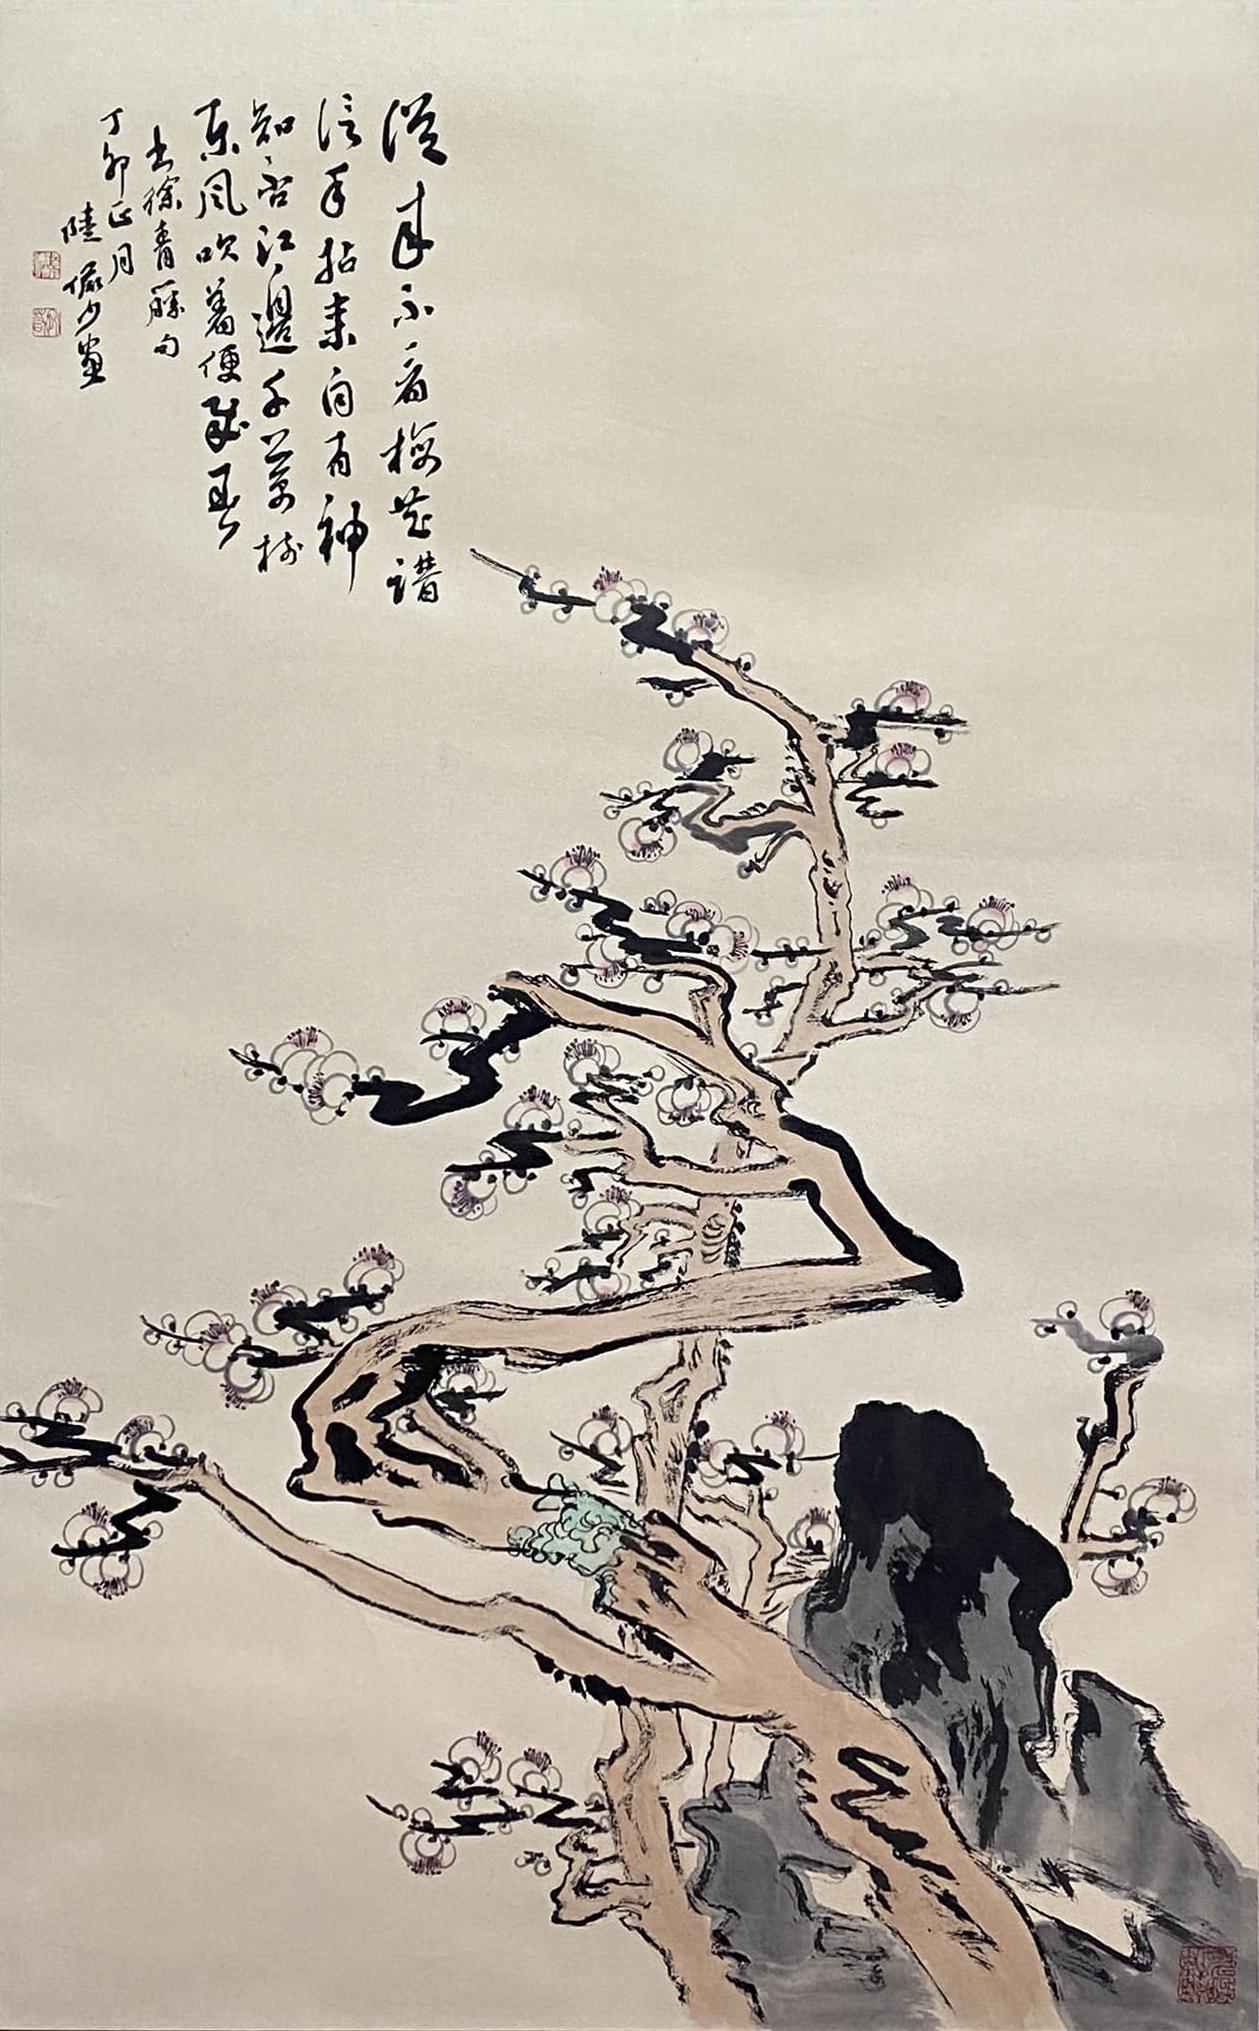 從來不看梅花譜
信手拈來自有神
知否江邊千萬樹
東風吹着便成春
書徐青藤句
丁卯正月
陸儼少畫